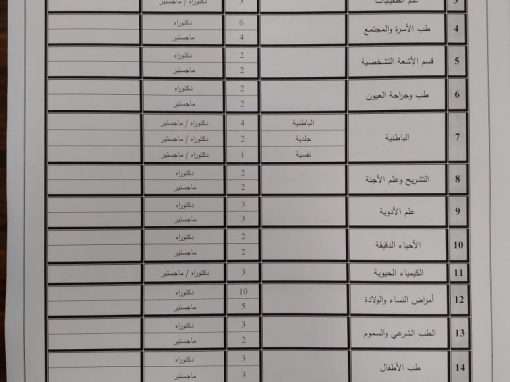 3 علم الطفيليات 3 دكتوراه / ماجستير
4 طب الأسرة والمجتمع 6 دكتوراه
4 ماجستير
5 قسم الأشعة التشخصية 2 دكتوراه
2 ماجستير
6 طب وجراحة العيون 2 دكتوراه
2 ماجستير
7 الباطنية الباطنية 4 دكتوراه / ماجستير
جلدية 2 دكتوراه / ماجستير
نفسية 1 دكتوراه / ماجستير
8 التشريح وعلم الأجنة 2 دكتوراه
2 ماجستير
9 علم الأدوية 3 دكتوراه
3 ماجستير
10 الأحياء الدقيقة 2 دكتوراه
2 ماجستير
11 الكيمياء الحيوية 3 دكتوراه / ماجستير
12 أمراض النساء والولادة 10 دكتوراه
5 ماجستير
13 الطب الشرعي والسموم 3 دكتوراه
2 ماجستير
14 طب الأطفال 3 دكتوراه
3 ماجستير